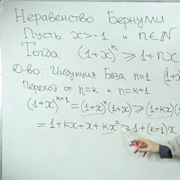 Неравенство Бернулли.
Пусть x>-1 и n∈N
Тогда (1+x)ⁿ ≥ 1+nx
Д-во: Индукция База n=1. (1+x
Переход от n=k к n=k+1
(1+x)ᵏ⁺¹ = (1+x)ᵏ(1+x) ≥ (1+kx)(1
= 1+kx+x+kx² ≥ 1+(k+1)x